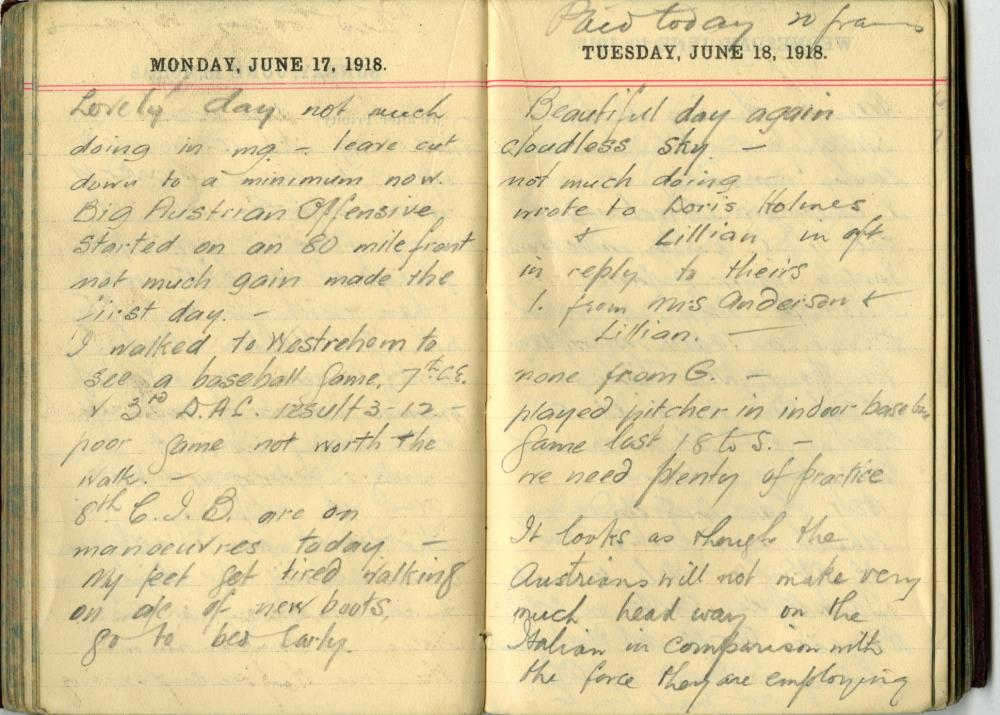 MONDAY, JUNE 17, 1918.
Lovely day not much
doing in mg - leave cut
down to a minimum now.
Big Austrian Offensive
started on an 80 mile front
not much gain made the
first day. -
I walked to Westrehem to
see a baseball game, 7th C.E.
v 3rd D.A.C. result 3-12 -
poor game not worth the
walk. -
8th C.I.B. are on
manoeuvres today -
My feet get tired walking
on a/c of new boots,
go to bed early.
Paid today 20 francs
TUESDAY, JUNE 18, 1918.
Beautiful day again
cloudless sky -
not much doing -
wrote to Doris Holmes
& Lillian in aft
in reply to theirs
1. from Mrs Anderson &
Lillian. -
none from G. -
played pitcher in indoor base ball
game lost 18 to 5. -
we need plenty of practice
It looks as though the
Austrians will not make very
much head way on the
Italian in comparison with
the force they are employing